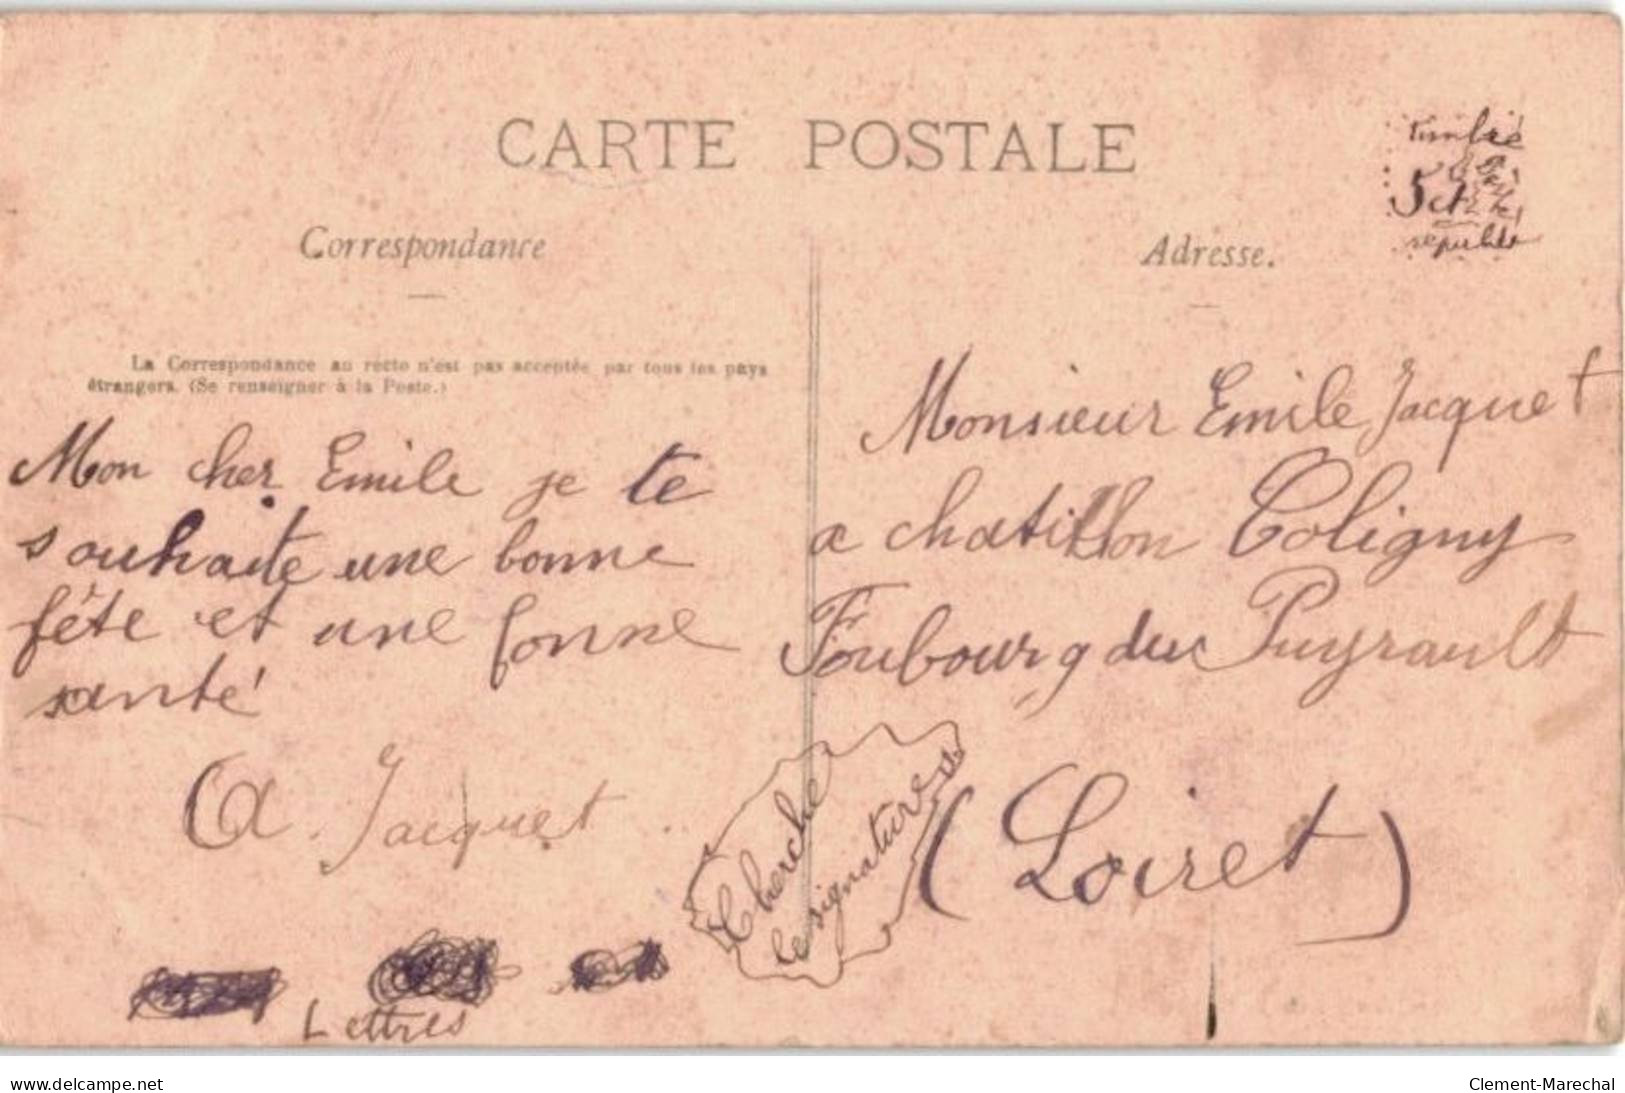 CARTE POSTALE
timbre
5ct
Correspondance
Adresse.
La Correspondance au recto n'est pas acceptée par tous les pays
étrangers. (Se renseigner à la Poste.)
Mon cher Emile je te
souhaite une bonne
fête et une bonne
santé
A. Jacquet
Lettres
Cherche
le signature
Monsieur Emile Jacquet
a chatillon Coligny
Foubourg du Puyrault
(Loiret)
www.delcampe.net
Clement-Marechal